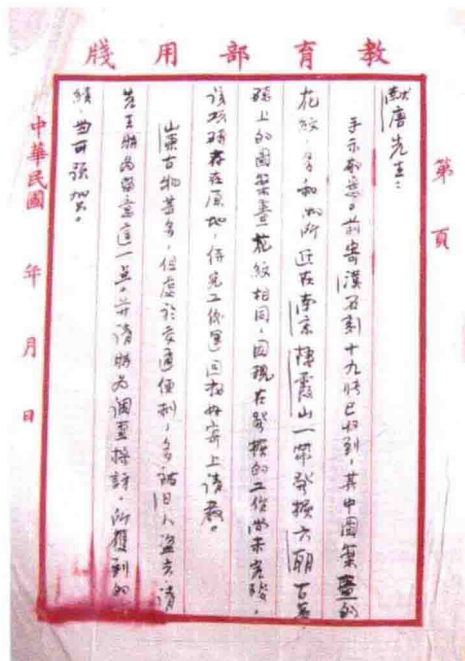 教育部用牋
第 頁
献唐先生：
手示敬悉。前寄漢石刻十九張已收到，其中圖案畫的
花紋，多和 所近在南京棲霞山一帶發掘六朝古墓
磚上的圖案畫花紋相同，因現在發掘的工作尚未完 ，
該項磚存在原地，待完工後運回拓好寄上請教。
山東古物甚多，但處於交通便利，多被日人盜去，請
先生特為留意這一点。并請 為調查採訪，所獲到的
績，
中華民國 年 月 日